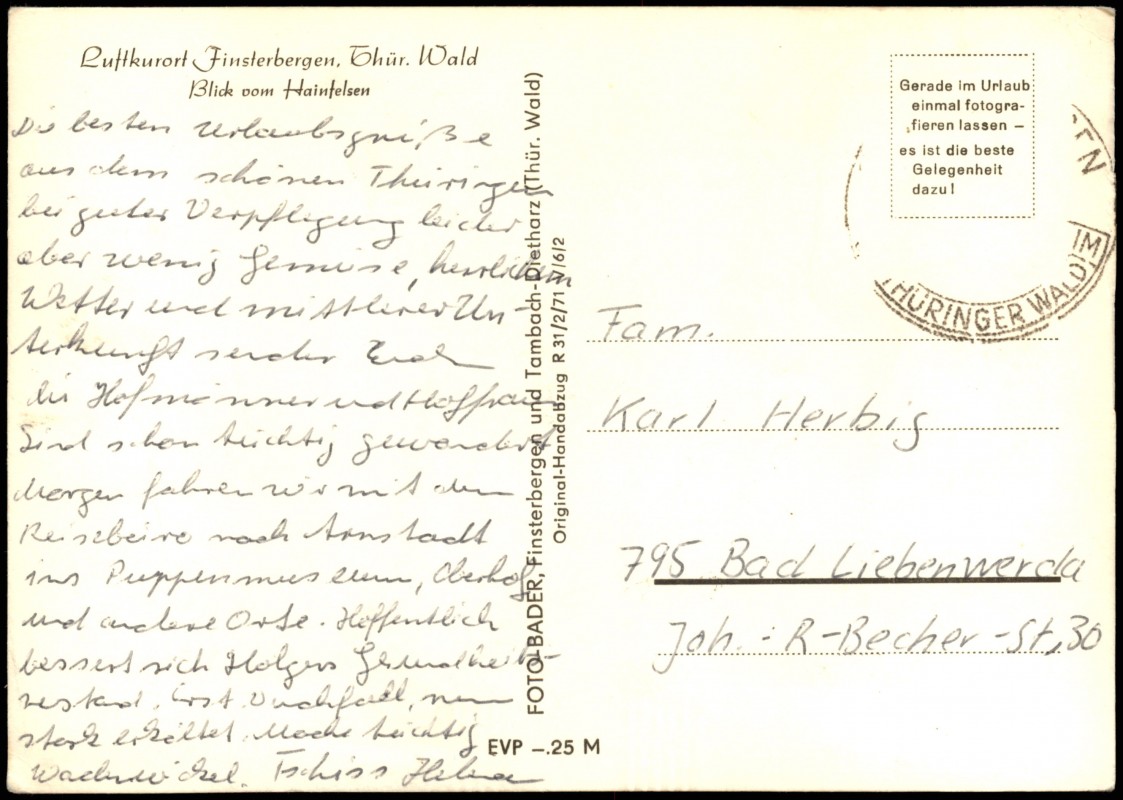 Luftkurort Finsterbergen, Thür. Wald
Blick vom Hainfelsen
Die besten Urlaubsgrüße
aus dem schönen Thüringen
bei guter Verpflegung leider
aber wenig Gemüse, herrlichem
Wetter und mittlerer Un-
terkunft sendet Euch
die Hofmänner und Hoffrau
Sind schon tüchtig gewandert
Morgen fahren wir mit dem
Reisebüro nach Arnstadt
ins Puppenmuseum, Oberhof
und andere Orte. Hoffentlich
bessert sich Holgers Gesundheits-
zustand. Erst Durchfall, nun
stark erkältet. Mache tüchtig
Wadenwickel. Tschiss
FOTO-BADER, Finsterbergen und Tambach-Dietharz (Thür. Wald)
Original-Handabzug R 31/2/71 V/6/2
EVP –.25 M
Gerade im Urlaub
einmal fotogra-
fieren lassen –
es ist die beste
Gelegenheit
dazu!
IM
THÜRINGER WALD
Fam.
Karl Herbig
795 Bad Liebenwerda
Joh.-R-Becher-St, 30